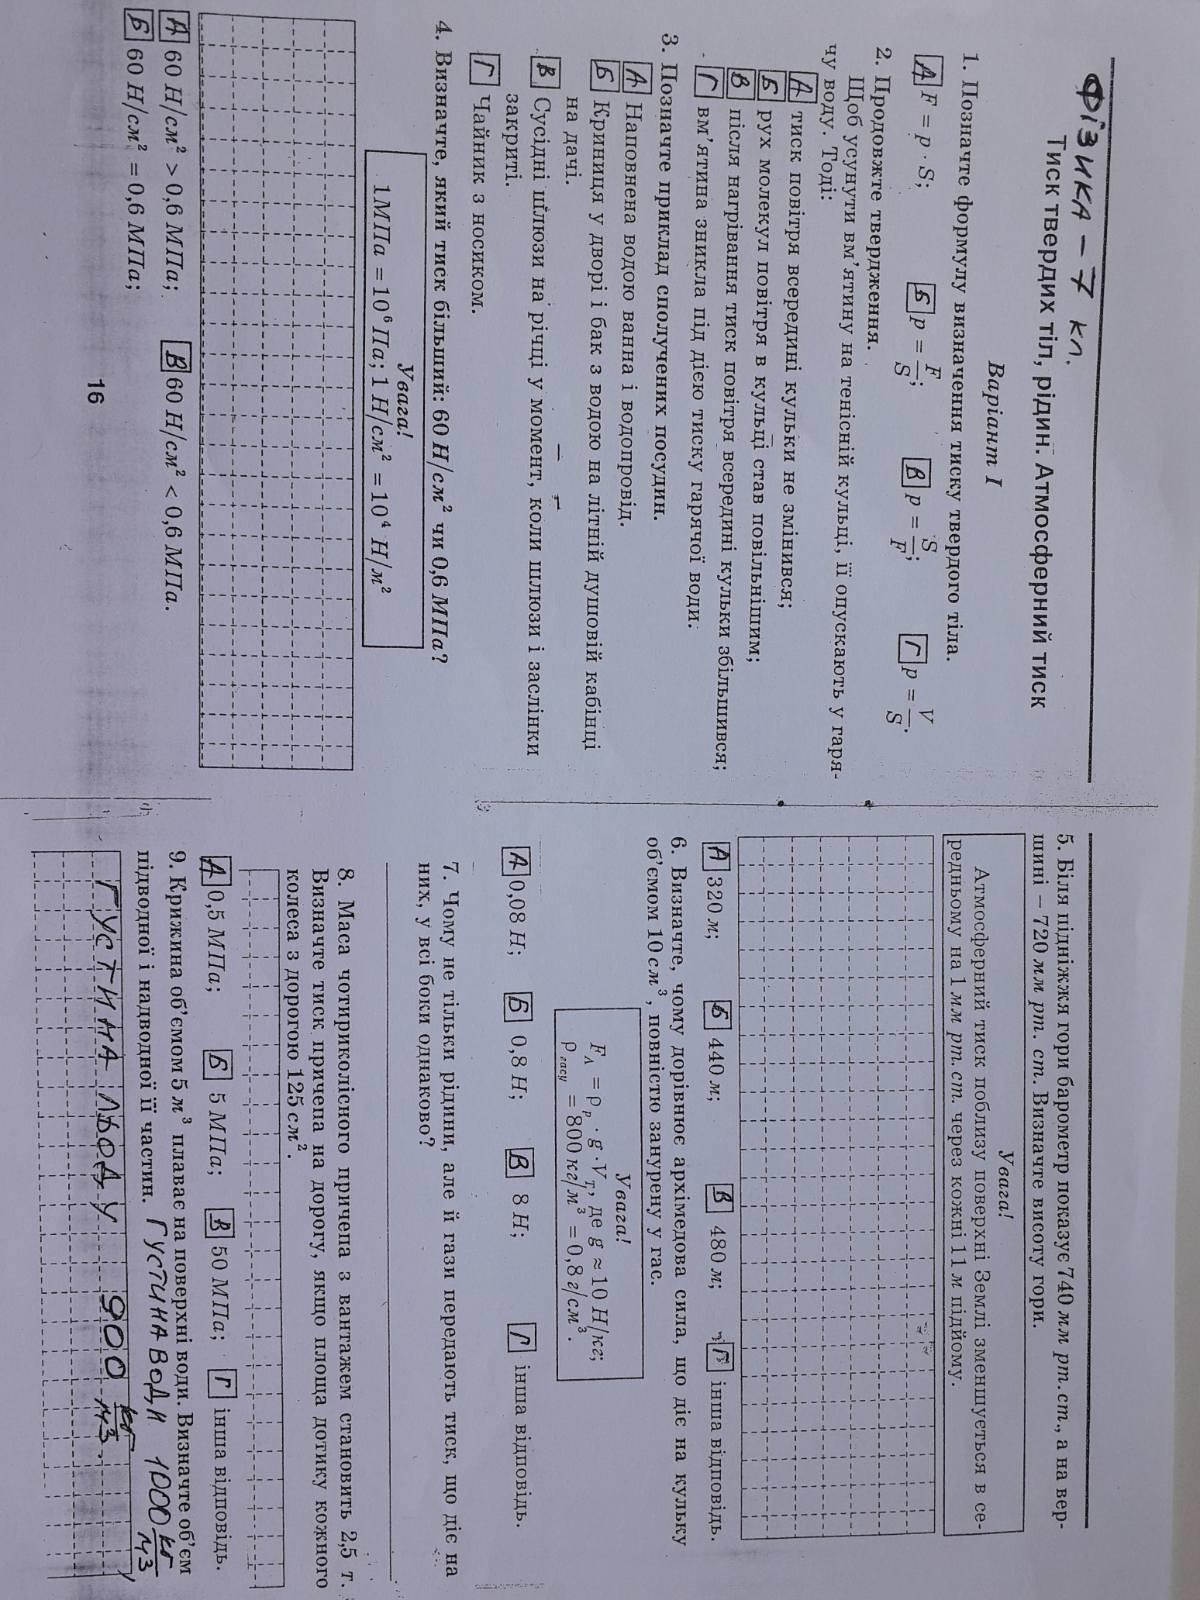 ФІЗИКА – 7 кл.
Тиск твердих тіл, рідин. Атмосферний тиск
Варіант I
1. Позначте формулу визначення тиску твердого тіла.
А F = p · S; Б p = F/S; В p = S/F; Г p = V/S.
2. Продовжте твердження.
Щоб усунути вм’ятину на тенісній кульці, її опускають у гаря-
чу воду. Тоді:
А тиск повітря всередині кульки не змінився;
Б рух молекул повітря в кульці став повільнішим;
В після нагрівання тиск повітря всередині кульки збільшився;
Г вм’ятина зникла під дією тиску гарячої води.
3. Позначте приклад сполучених посудин.
А Наповнена водою ванна і водопровід.
Б Криниця у дворі і бак з водою на літній душовій кабінці
на дачі.
В Сусідні шлюзи на річці у момент, коли шлюзи і заслінки
закриті.
Г Чайник з носиком.
4. Визначте, який тиск більший: 60 Н/см² чи 0,6 МПа?
Увага!
1 МПа = 10⁶ Па; 1 Н/см² = 10⁴ Н/м²
А 60 Н/см² > 0,6 МПа; В 60 Н/см² < 0,6 МПа.
Б 60 Н/см² = 0,6 МПа;
16
5. Біля підніжжя гори барометр показує 740 мм рт. ст., а на вер-
шині – 720 мм рт. ст. Визначте висоту гори.
Увага!
Атмосферний тиск поблизу поверхні Землі зменшується в се-
редньому на 1 мм рт. ст. через кожні 11 м підйому.
А 320 м; Б 440 м; В 480 м; Г інша відповідь.
6. Визначте, чому дорівнює архімедова сила, що діє на кульку
об’ємом 10 см³, повністю занурену у гас.
Увага!
F_Λ = ρ_р · g · V_Т, де g ≈ 10 Н/кг;
ρ_гасу = 800 кг/м³ = 0,8 г/см³.
А 0,08 Н; Б 0,8 Н; В 8 Н; Г інша відповідь.
7. Чому не тільки рідини, але й гази передають тиск, що діє на
них, у всі боки однаково?
8. Маса чотириколісного причепа з вантажем становить 2,5 т.
Визначте тиск причепа на дорогу, якщо площа дотику кожного
колеса з дорогою 125 см².
А 0,5 МПа; Б 5 МПа; В 50 МПа; Г інша відповідь.
9. Крижина об’ємом 5 м³ плаває на поверхні води. Визначте об’єм
підводної і надводної її частин. ГУСТИНА ВОДИ 1000 кг/м3
ГУСТИНА ЛЬОДУ 900 кг/м3.